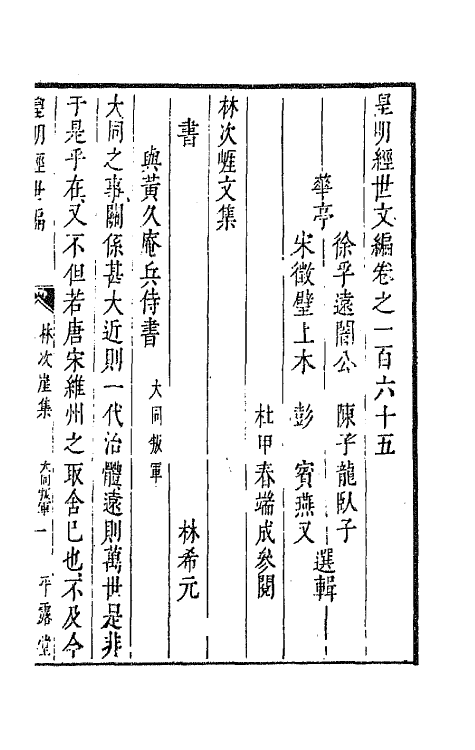 皇明經世文編卷之一百六十五
華亭
徐孚遠闇公 陳子龍臥子
宋徵璧上木 彭 賓燕又
選輯
杜甲春端成參閱
林次崖文集
林希元
書
與黃久庵兵侍書 大同叛軍
大同之事關係甚大近則一代治體遠則萬世是非
于是乎在又不但若唐宋維州之取舍已也不及今
皇明經世編 林次崖集 大同叛軍 一 平露堂